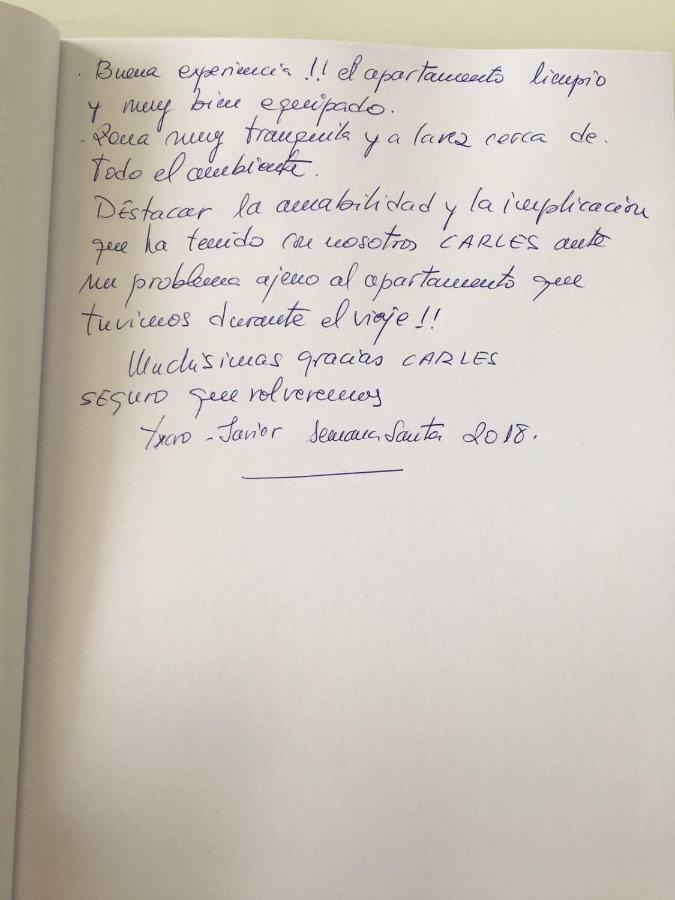 . Buena experiencia !! el apartamento limpio
y muy bien equipado.
. Zona muy tranquila y a la vez cerca de.
Todo el ambiente.
DEstacar la amabilidad y la implicación
que ha tenido con nosotros CARLES ante
un problema ajeno al apartamento que
tuvimos durante el viaje!!
Muchisimas gracias CARLES
SEGURO que volveremos
- Javier Semana Santa 2018.